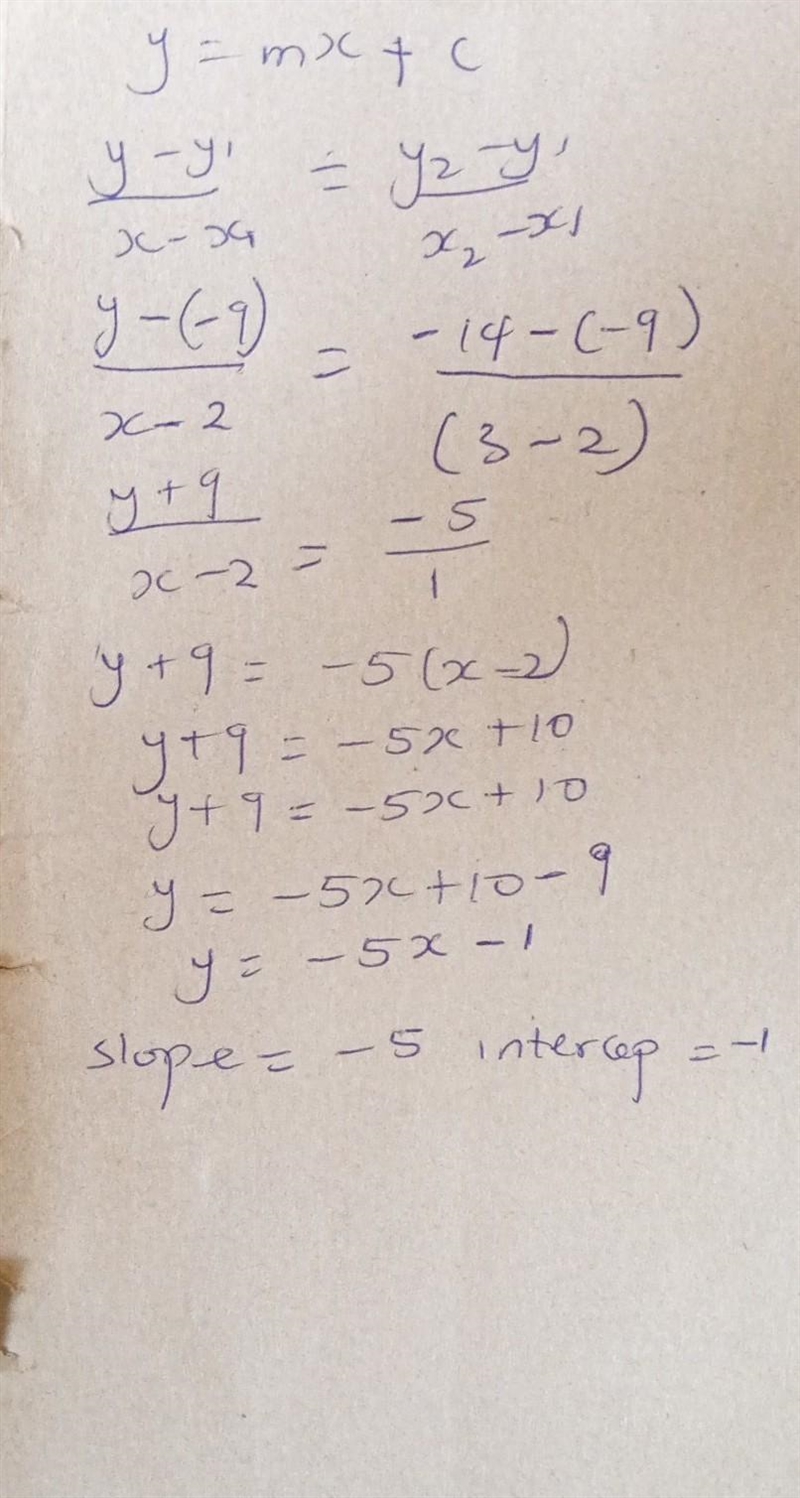 y = mx + c
y - y1 / x - x1 = y2 - y1 / x2 - x1
y - (-9) / x - 2 = -14 - (-9) / (3 - 2)
y + 9 / x - 2 = -5 / 1
y + 9 = -5(x - 2)
y + 9 = -5x + 10
y + 9 = -5x + 10
y = -5x + 10 - 9
y = -5x - 1
slope = -5 intercep = -1